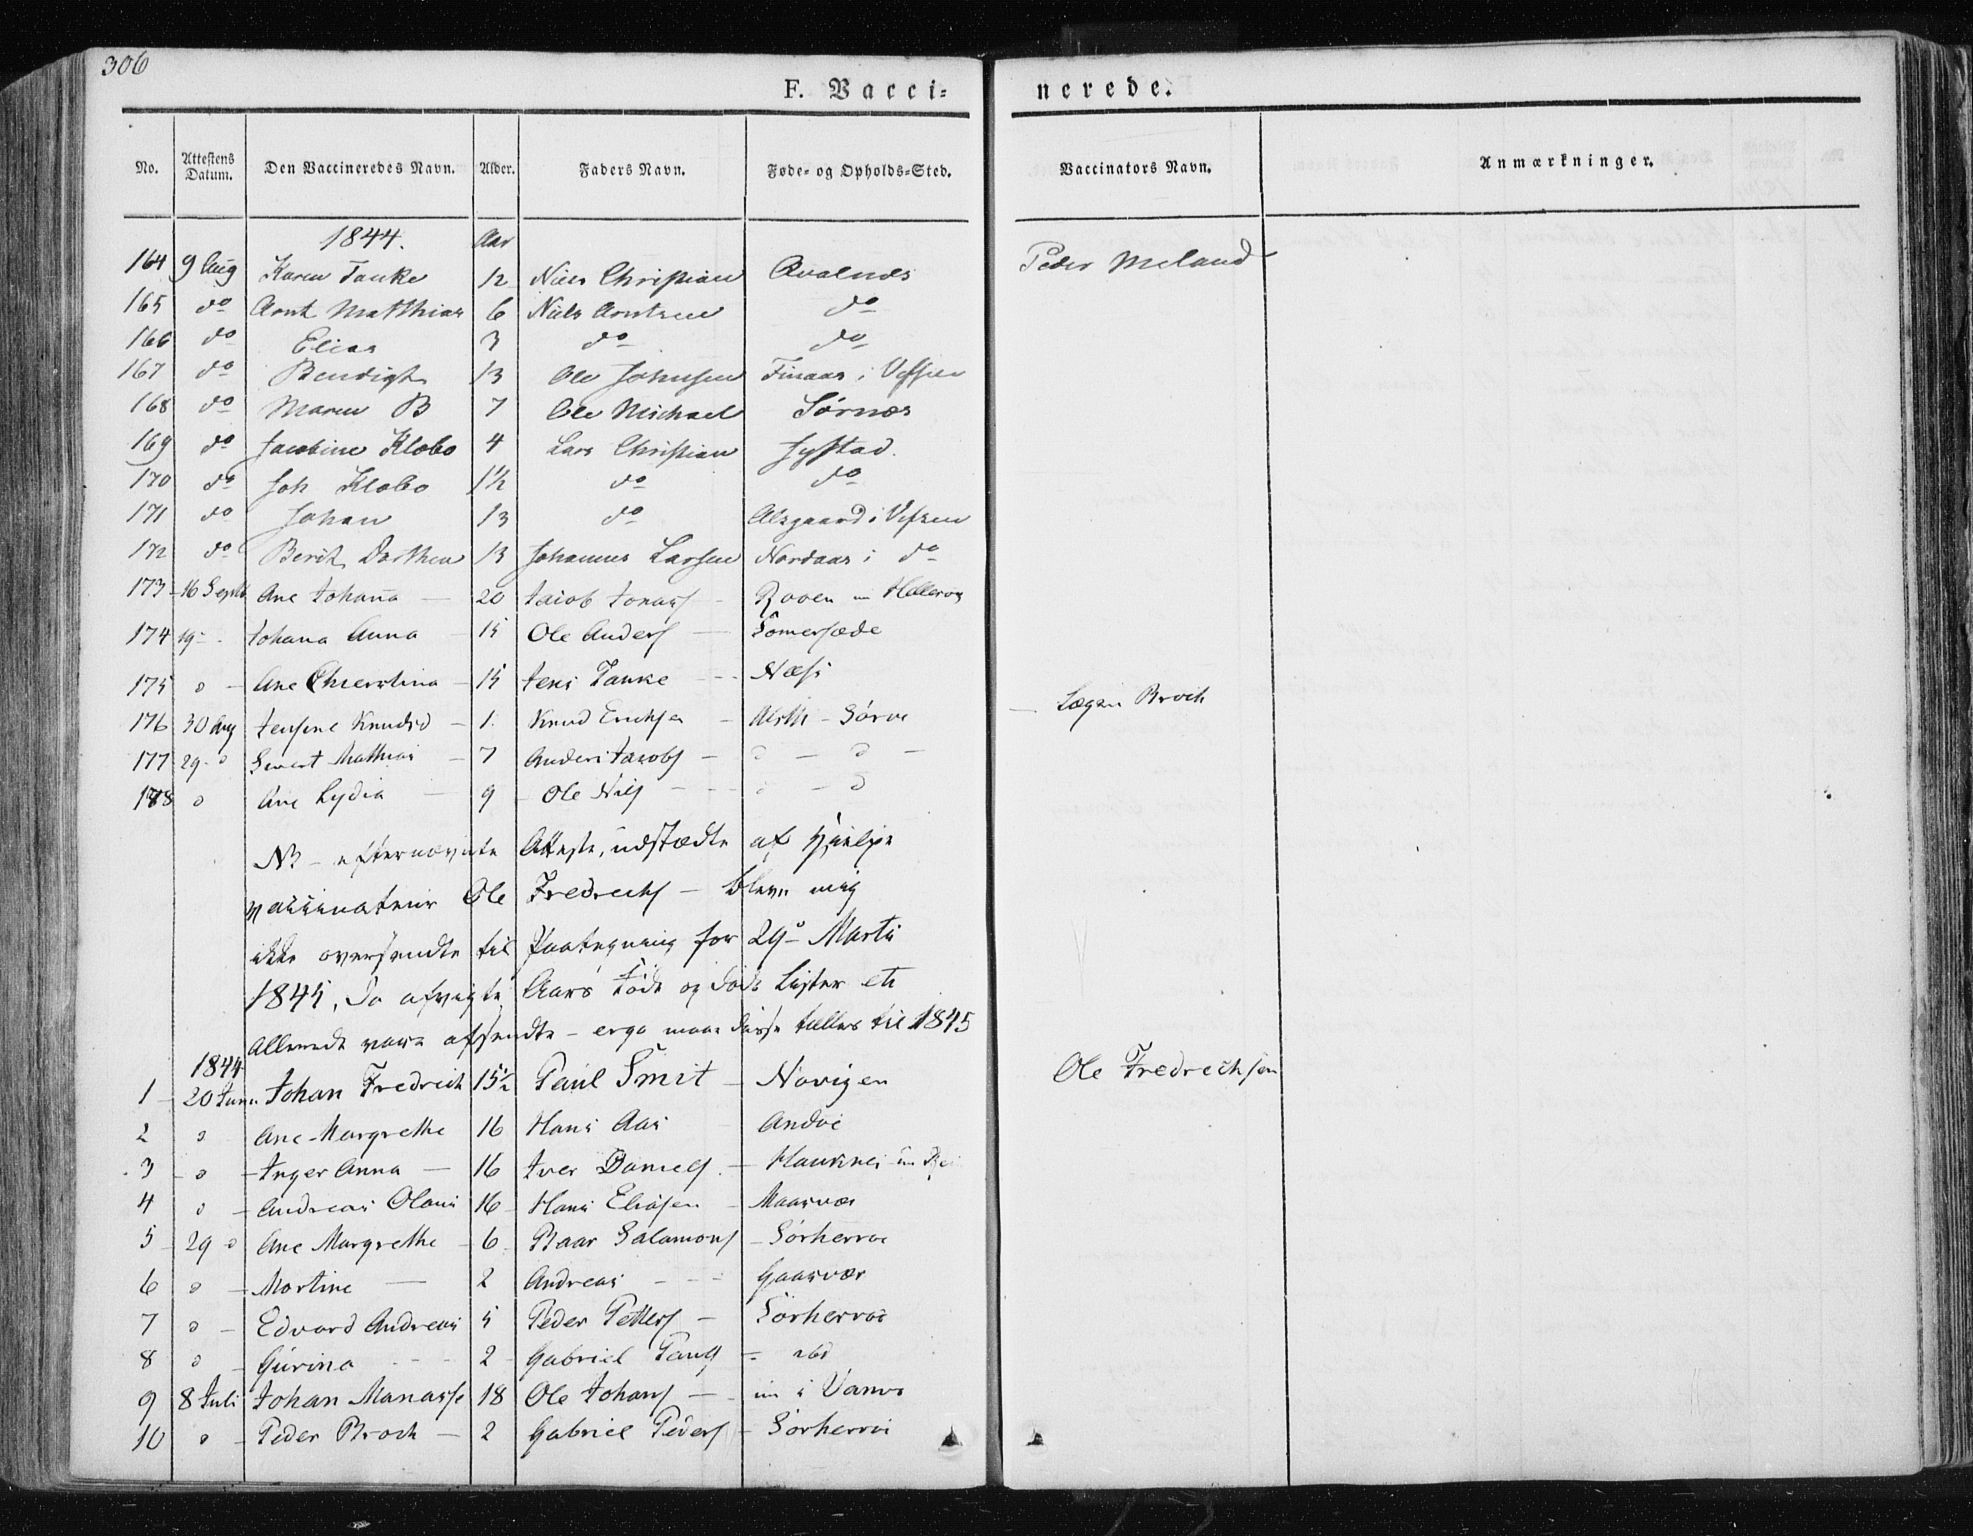 306
F. Vacci=
nerede.
No. Attestens Datum. Den Vaccineredes Navn. Alder. Faders Navn. Føde= og Opholds=Sted. Vaccinators Navn. Anmærkninger.
1844. Aar
164 9 Aug Karen Tanke 12 Niels Christian Qvalnæs Peder Meland
165 do Arnt Matthias 6 Niels Arntsen do
166 do Elias 3 do do
167 do Bendigt 13 Ole Johnsen Finaas i Vefsen
168 do Maren B 7 Ole Michael Sørnæs
169 do Jacobine Klæbo 4 Lars Christian Systad.
170 do Joh Klæbo 1½ do do
171 do Johan 13 do Alsgaard i Vefsen
172 do Berit Dorthea 13 Johannes Larsen Nordaas i do
173 16 Septb Ane Johana 20 Jacob Jonas
174 19 - Johana Anna 15 Ole Anders Sømersæde
175 o Ane Chierstina 15 Jens Tanke Næss
176 30 Aug Jensine Knudsd 1. Knud Ericksen - Sørve Lægen Broch
177 29 - o Sivert Mathias 7 Anders Jacobs o - o
178 o Ane Lydia 9 Ole Nils o - o
NB - efternævnte Atteste, udstædte af Hjelpe
vaccinateur Ole Fredrechs - bleve mig
ikke oversendte til Paategning før 29o Marts
1845, da afvigte Aars føde og døde Lister etc
allerede vare afsendte - ergo maae disse tælles til 1845
1844
1 20 Juni Johan Fredrich 15½ Paul Smit - Novigen Ole Fredrechsen
2 o Ane Margrethe 16 Hans Aas Andøe
3 o Inger Anna 16 Iver Daniels - Hauknes
4 o Andreas Olaus 16 Hans Eliasen Maasvær
5 29 o Ane Margrethe 6 Baar Salamons Sørherrøe
6 o Martine 2 Andreas - Gaasvær
7 o Edvard Andreas 5 Peder Petters - Sørherrøe
8 o Gurina 2 Gabriel Pauls = ibd
9 8 Juli Johan Manasse 18 Ole Johans - im i
10 o Peder Broch 2 Gabriel Peders - Sørherrøe